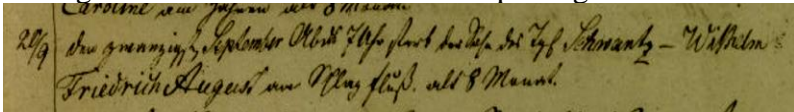 Caroline am Zahnen alt 8 Monat
20/9 den zwanzigst September Abds 7 Uhr starb der Sohn des Tgl Schwantz – Wilhelm
Friedrich August am Schlagfluß. alt 8 Monat.